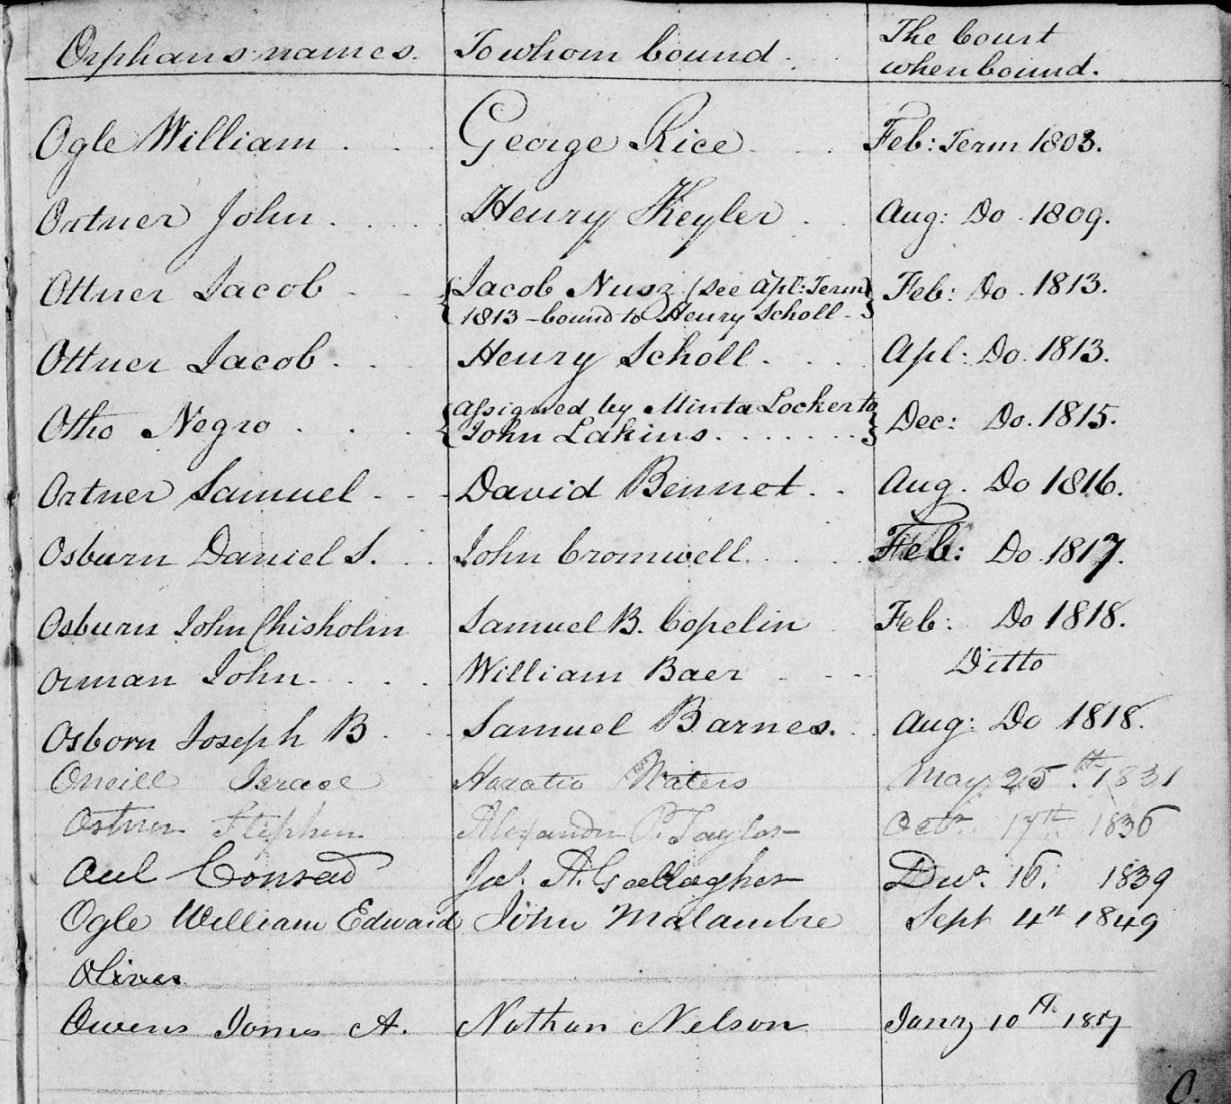 Orphans names. To whom bound. The Court
when bound.
Ogle William . . . George Rice . . Feb: Term 1803.
Ortner John . . . . Henry Keyler . . Aug: Do. 1809.
Ottner Jacob - - {Jacob Nusz (See Apl: Term} Feb: Do. 1813.
{1813 - bound to Henry Scholl -}
Ottner Jacob . . . Henry Scholl . . . Apl: Do. 1813.
Otho Negro . . . {Assigned by Minta Locker to Dec: Do. 1815.
{John Lakins . . . . . . . }
Ortner Samuel - - - David Bennet . . Aug. Do 1816.
Osburn Daniel S. . . John Cromwell . . . . Feb: Do. 1817.
Osburn John Chisholm Samuel B. Copelin Feb: Do 1818.
Orman John . . . . William Baer - - - Ditto
Osborn Joseph B. . . Samuel Barnes. . Aug: Do 1818.
Oneill Israel Horatio Waters May 25.th 1831
Ostner Stephen Alexander P. Taylor Octr 17th 1836
Aul Conrad Jas. A. Gallagher Decr. 16. 1839
Ogle William Edward John Malambre Sept 4th 1849
Oliver
Owens James A. Nathan Nelson Jany 10th
O.